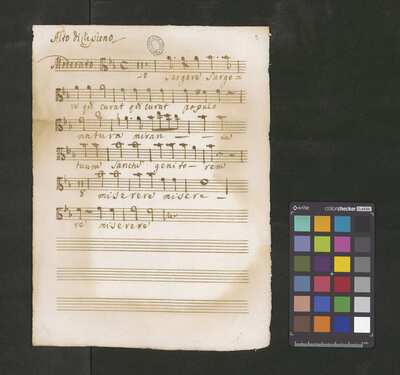 Alto di
Moderato
surgere surge =
re qui curat qui curat populo
natura miran — — te
tuum sanctu genito — rem
miserere misere —
re miserere
colorchecker CLASSIC